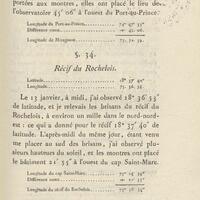 portées aux montres, elles ont placé le lieu de
l'observatoire 45′ 06″ à l'ouest du Port-au-Prince
Longitude du Port-au-Prince
Différence ouest
Longitude de Miragoane
§. 34.
Récif du Rochelois.
Latitude 18° 37′ 40″
Longitude
Le 13 janvier, à midi, j'ai observé 18° 36′ 53″
de latitude, et je relevais les brisans du récif du
Rochelois, à environ un mille dans le nord-nord-
est : ce qui a donné pour le récif 18° 37′ 40″ de
latitude. L'après-midi du même jour, étant venu
me placer au sud des brisans, j'ai observé plu-
sieurs hauteurs du soleil, et les montres ont placé
le bâtiment 21′ 35″ à l'ouest du cap Saint-Marc.
Longitude du cap Saint-Marc
Différence ouest
Longitude du récif du Rochelois